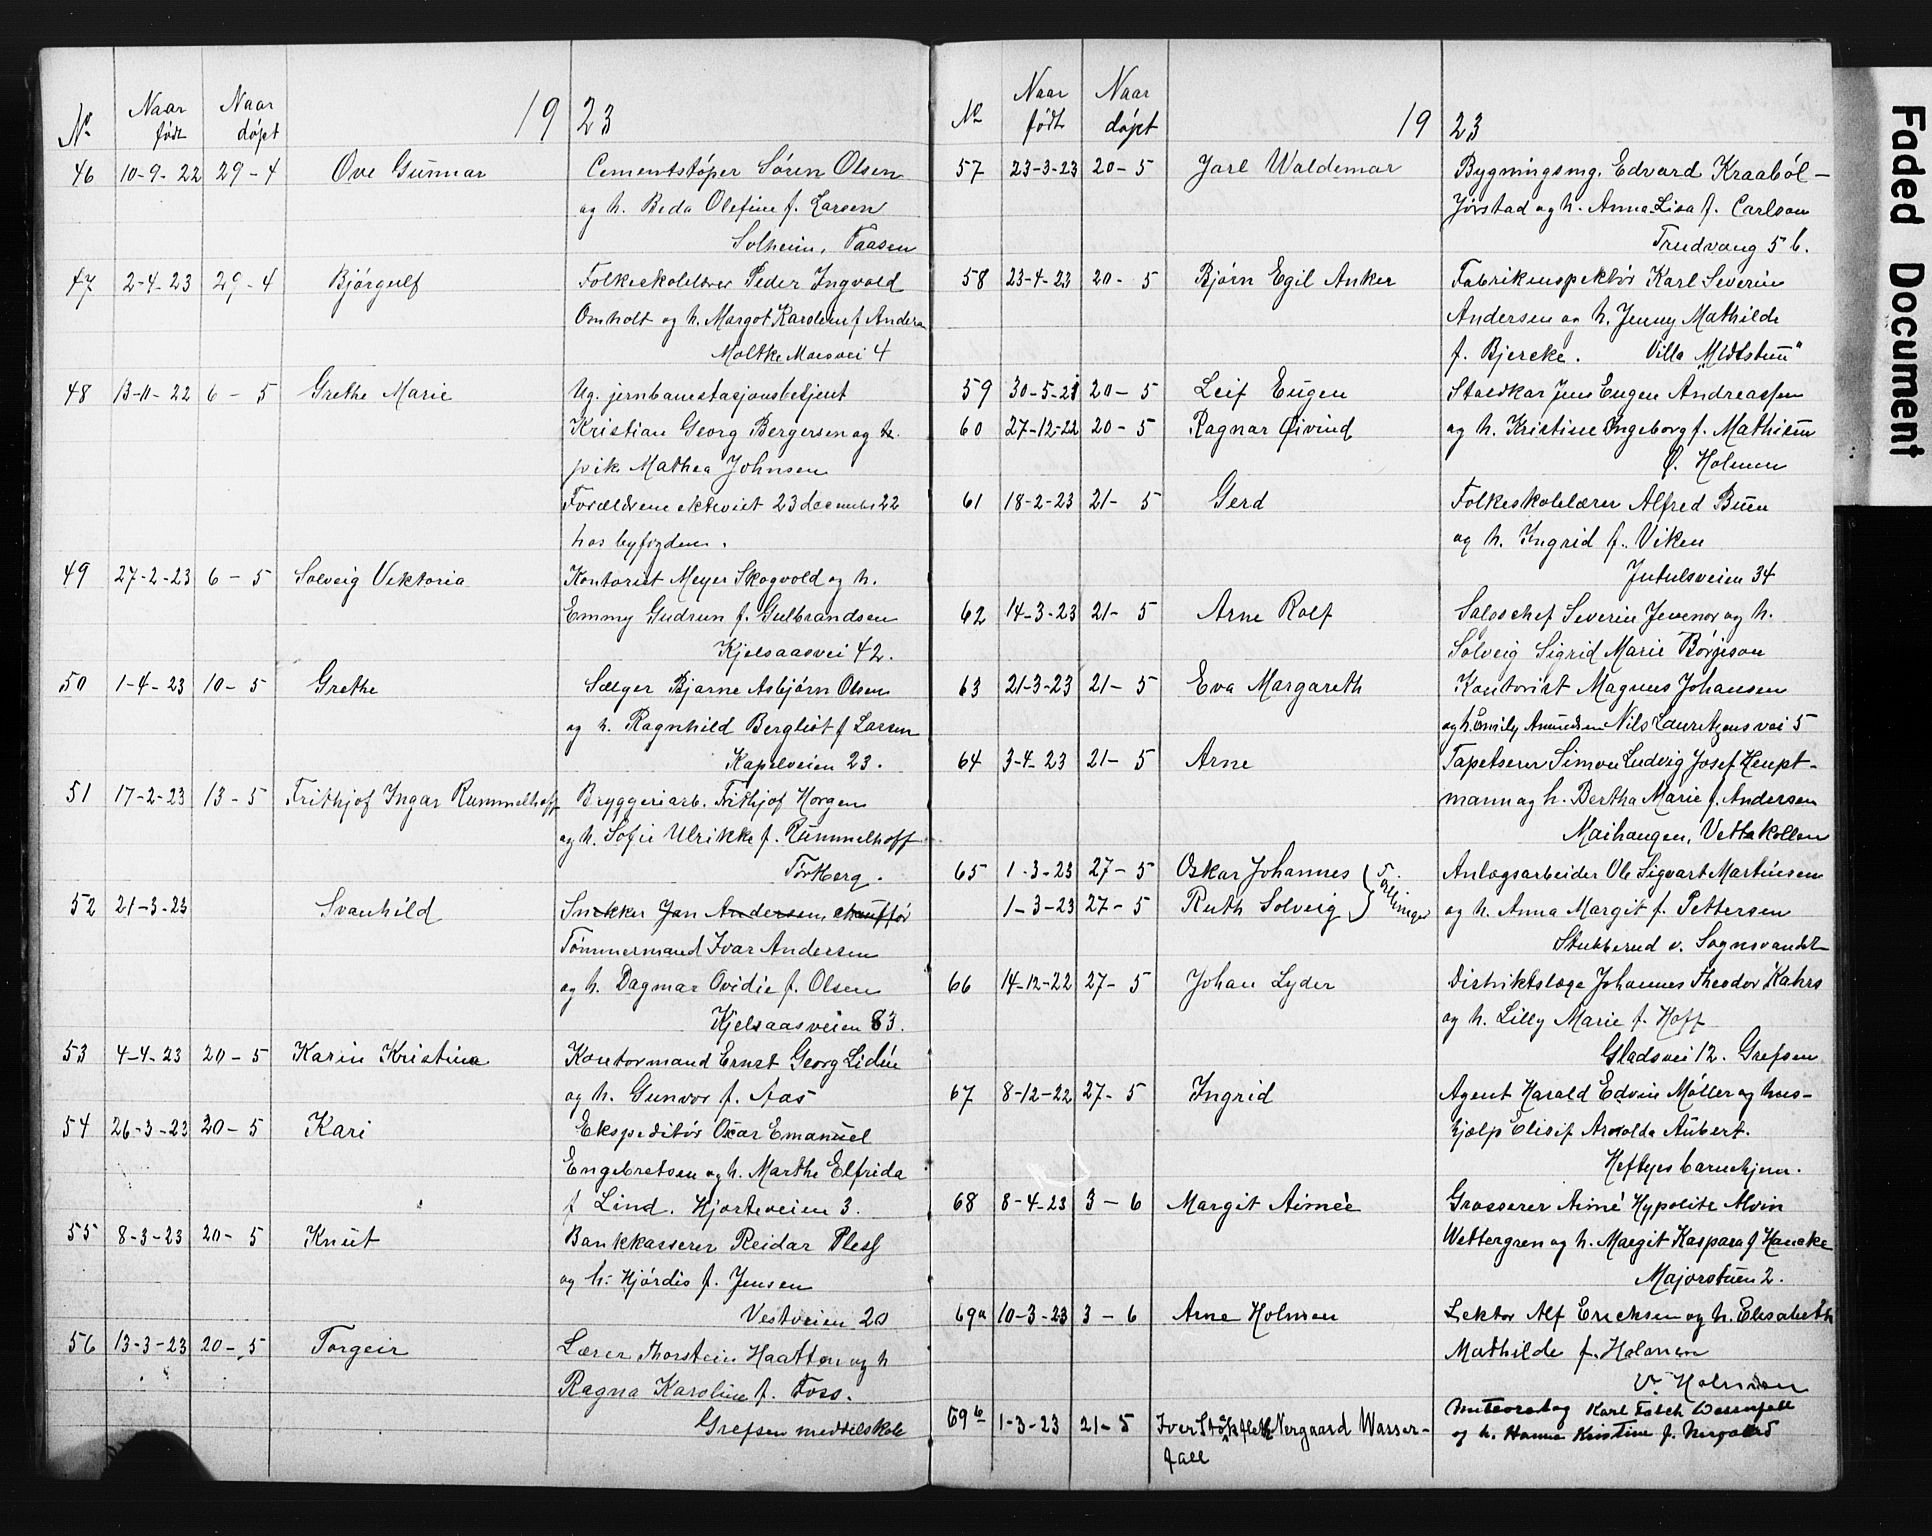 No Naar født Naar døpt 19 23
46 10-9-22 29-4 Ove Gunnar Cementstøper Søren Olsen
og h. Beda Olefine f. Larsen
Solheim, Taasen
47 2-4-23 29-4 Bjørgulf Folkeskolelærer Peder Ingvald
Omholt og h. Margot Karoline f Andersen
Moltke Moesvei 4
48 13-11-22 6-5 Grethe Marie Ug. jernbanestasjonsbetjent
Kristian Georg Bergersen og
pike Mathea Johnsen
Forældrene ekteviet 23 december 22
hos byfogden.
49 27-2-23 6-5 Solveig Viktoria Kontorist Meyer Skogvold og h.
Emmy Gudrun f. Gulbrandsen
Kjelsaasvei 42.
50 1-4-23 10-5 Grethe Sælger Bjarne Asbjørn Olsen
og h. Ragnhild Bergliot f Larsen
Kapelveien 23.
51 17-2-23 13-5 Frithjof Ingar Rummelhoff Bryggeriarb. Frithjof Horgen
og h. Sofie Ulrikke f. Rummelhoff
Torkerg.
52 21-3-23 Svanhild Snekker Jan Andersen chauffør
Tømmermand Ivar Andersen
og h. Dagmar Ovidie f. Olsen
Kjelsaasveien 83.
53 4-4-23 20-5 Karin Kristine Kontormand Ernst Georg Lidén
og h. Gunvor f. Aas
54 26-3-23 20-5 Kari Ekspeditør Oscar Emanuel
Engebretsen og h. Marthe Elfrida
f Lind. Hjorteveien 3.
55 8-3-23 20-5 Knut Bankkasserer Reidar Pless
og h. Hjørdis f. Jensen
Vestveien 20
56 13-3-23 20-5 Torgeir Lærer Thorstein Haatton og h
Ragna Karoline f. Foss.
Grefsen middelskole
No Naar født Naar døpt 19 23
57 23-3-23 20-5 Jarl Waldemar Bygningsing. Edvard Kraabøl-
Jørstad og h. Anna Lisa f. Carlson
Trudvang 5 b.
58 23-4-23 20-5 Bjørn Egil Anker Fabrikinspektør Karl Severin
Andersen og h. Jenny Mathilde
f. Bjercke. Villa "Midtstuen"
59 30-5-21 20-5 Leif Eugen Staldkar Jens Eugen Andreassen
60 27-12-22 20-5 Ragnar Øivind og h. Kristine Ingeborg f. Mathisen
Ø. Holmen
61 18-2-23 21-5 Gerd Folkeskolelærer Alfred Buen
og h. Ingrid f. Viken
Jutulsveien 34
62 14-3-23 21-5 Arne Rolf Salgschef Severin Jevenor og h.
Solveig Sigrid Marie Børjeson
63 21-3-23 21-5 Eva Margareth Kontorist Magnus Johansen
og h. Emily Amundsen Nils Lauritzens vei 5
64 3-4-23 21-5 Arne Tapetserer Simon Ludvig Josef Haupt-
mann og h. Bertha Marie f. Andersen
Maihaugen, Vettakollen
65 1-3-23 27-5 Oskar Johannes } Tvillinger Anlægsarbeider Ole Sigvart Martinsen
1-3-23 27-5 Ruth Solveig og h. Anna Margit f. Pettersen
Stubberud v. Sognsvandet
66 14-12-22 27-5 Johan Lyder Distriktslæge Johannes Theodor Kahrs
og h. Lilly Marie f. Hoff
Gladsvei 12. Grefsen
67 8-12-22 27-5 Ingrid Agent Harald Edvin Møller og hus-
hjælp Elisif Arnolda Aubert.
Heftyes barnehjem.
68 8-4-23 3-6 Margit Aimée Grosserer Aimé Hypolite Alvin
Wettergren og h. Margit Kaspara f Hancke
Majorstuen 2.
69a 10-3-23 3-6 Arne Holmen Lektor Alf Ericksen og h. Elisabeth
Mathilde f. Holmen
V. Holmen
69b 1-3-23 21-5 Iver Stockfleth Nergaard Wasser- Meteorolog Karl Falch Wasserfall
fall og h. Hanna Kristine f. Nergaard
Faded Document